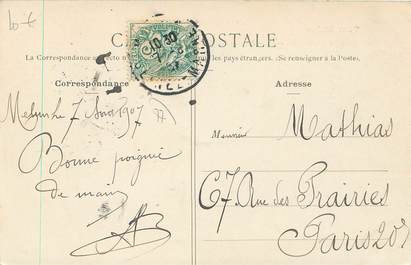 10 €
CARTE POSTALE
La Correspondance au les pays étrangers. Se renseigner à la Poste.
Correspondance
Adresse
Melun le 7 Août 1907
Bonne poignée
de main
Monsieur Mathias
67 Rue des Prairies
Paris 20e